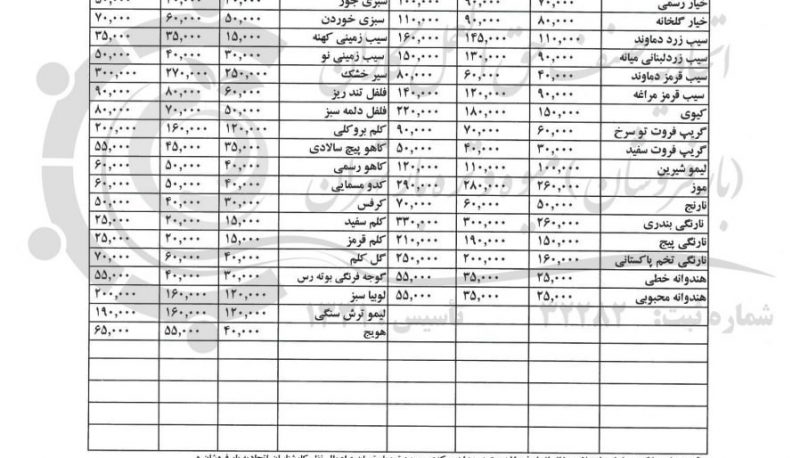 خیار رسمی ۷۰,۰۰۰ ۹۰,۰۰۰ ۱۰۰,۰۰۰ سبزی جور
خیار گلخانه ۸۰,۰۰۰ ۹۰,۰۰۰ ۱۱۰,۰۰۰ سبزی خوردن ۵۰,۰۰۰ ۶۰,۰۰۰ ۷۰,۰۰۰
سیب زرد دماوند ۱۱۰,۰۰۰ ۱۴۵,۰۰۰ ۱۶۰,۰۰۰ سیب زمینی کهنه ۱۵,۰۰۰ ۳۵,۰۰۰ ۳۵,۰۰۰
سیب زردلبنانی میانه ۹۰,۰۰۰ ۱۳۰,۰۰۰ ۱۵۰,۰۰۰ سیب زمینی نو ۳۰,۰۰۰ ۴۰,۰۰۰ ۵۰,۰۰۰
سیب قرمز دماوند ۴۰,۰۰۰ ۶۰,۰۰۰ ۸۰,۰۰۰ سیر خشک ۲۵۰,۰۰۰ ۲۷۰,۰۰۰ ۳۰۰,۰۰۰
سیب قرمز مراغه ۹۰,۰۰۰ ۱۲۰,۰۰۰ ۱۴۰,۰۰۰ فلفل تند ریز ۶۰,۰۰۰ ۸۰,۰۰۰ ۹۰,۰۰۰
کیوی ۱۵۰,۰۰۰ ۱۸۰,۰۰۰ ۲۲۰,۰۰۰ فلفل دلمه سبز ۵۰,۰۰۰ ۷۰,۰۰۰ ۸۰,۰۰۰
گریپ فروت تو سرخ ۶۰,۰۰۰ ۷۰,۰۰۰ ۹۰,۰۰۰ کلم بروکلی ۱۲۰,۰۰۰ ۱۶۰,۰۰۰ ۲۰۰,۰۰۰
گریپ فروت سفید ۳۰,۰۰۰ ۴۰,۰۰۰ ۵۰,۰۰۰ کاهو پیچ سالادی ۳۵,۰۰۰ ۴۵,۰۰۰ ۵۵,۰۰۰
لیمو شیرین ۱۰۰,۰۰۰ ۱۱۰,۰۰۰ ۱۲۰,۰۰۰ کاهو رسمی ۴۰,۰۰۰ ۵۰,۰۰۰ ۶۰,۰۰۰
موز ۲۶۰,۰۰۰ ۲۸۰,۰۰۰ ۲۹۰,۰۰۰ کدو مسمایی ۴۰,۰۰۰ ۵۰,۰۰۰ ۶۰,۰۰۰
نارنج ۵۰,۰۰۰ ۶۰,۰۰۰ ۷۰,۰۰۰ کرفس ۳۰,۰۰۰ ۴۰,۰۰۰ ۵۰,۰۰۰
نارنگی بندری ۲۶۰,۰۰۰ ۳۰۰,۰۰۰ ۳۳۰,۰۰۰ کلم سفید ۱۵,۰۰۰ ۲۰,۰۰۰ ۲۵,۰۰۰
نارنگی پیج ۱۵۰,۰۰۰ ۱۹۰,۰۰۰ ۲۱۰,۰۰۰ کلم قرمز ۱۵,۰۰۰ ۲۰,۰۰۰ ۲۵,۰۰۰
نارنگی تخم پاکستانی ۱۶۰,۰۰۰ ۲۰۰,۰۰۰ ۲۵۰,۰۰۰ گل کلم ۴۰,۰۰۰ ۶۰,۰۰۰ ۷۰,۰۰۰
هندوانه خطی ۲۵,۰۰۰ ۳۵,۰۰۰ ۵۵,۰۰۰ گوجه فرنگی بوته رس ۳۰,۰۰۰ ۴۰,۰۰۰ ۵۵,۰۰۰
هندوانه محبوبی ۲۵,۰۰۰ ۳۵,۰۰۰ ۵۵,۰۰۰ لوبیا سبز ۱۲۰,۰۰۰ ۱۶۰,۰۰۰ ۲۰۰,۰۰۰
لیمو ترش سنگی ۱۲۰,۰۰۰ ۱۶۰,۰۰۰ ۱۹۰,۰۰۰
هویج ۴۰,۰۰۰ ۵۵,۰۰۰ ۶۵,۰۰۰
شماره ثبت: ۳۲۲۸۲ تأسیس